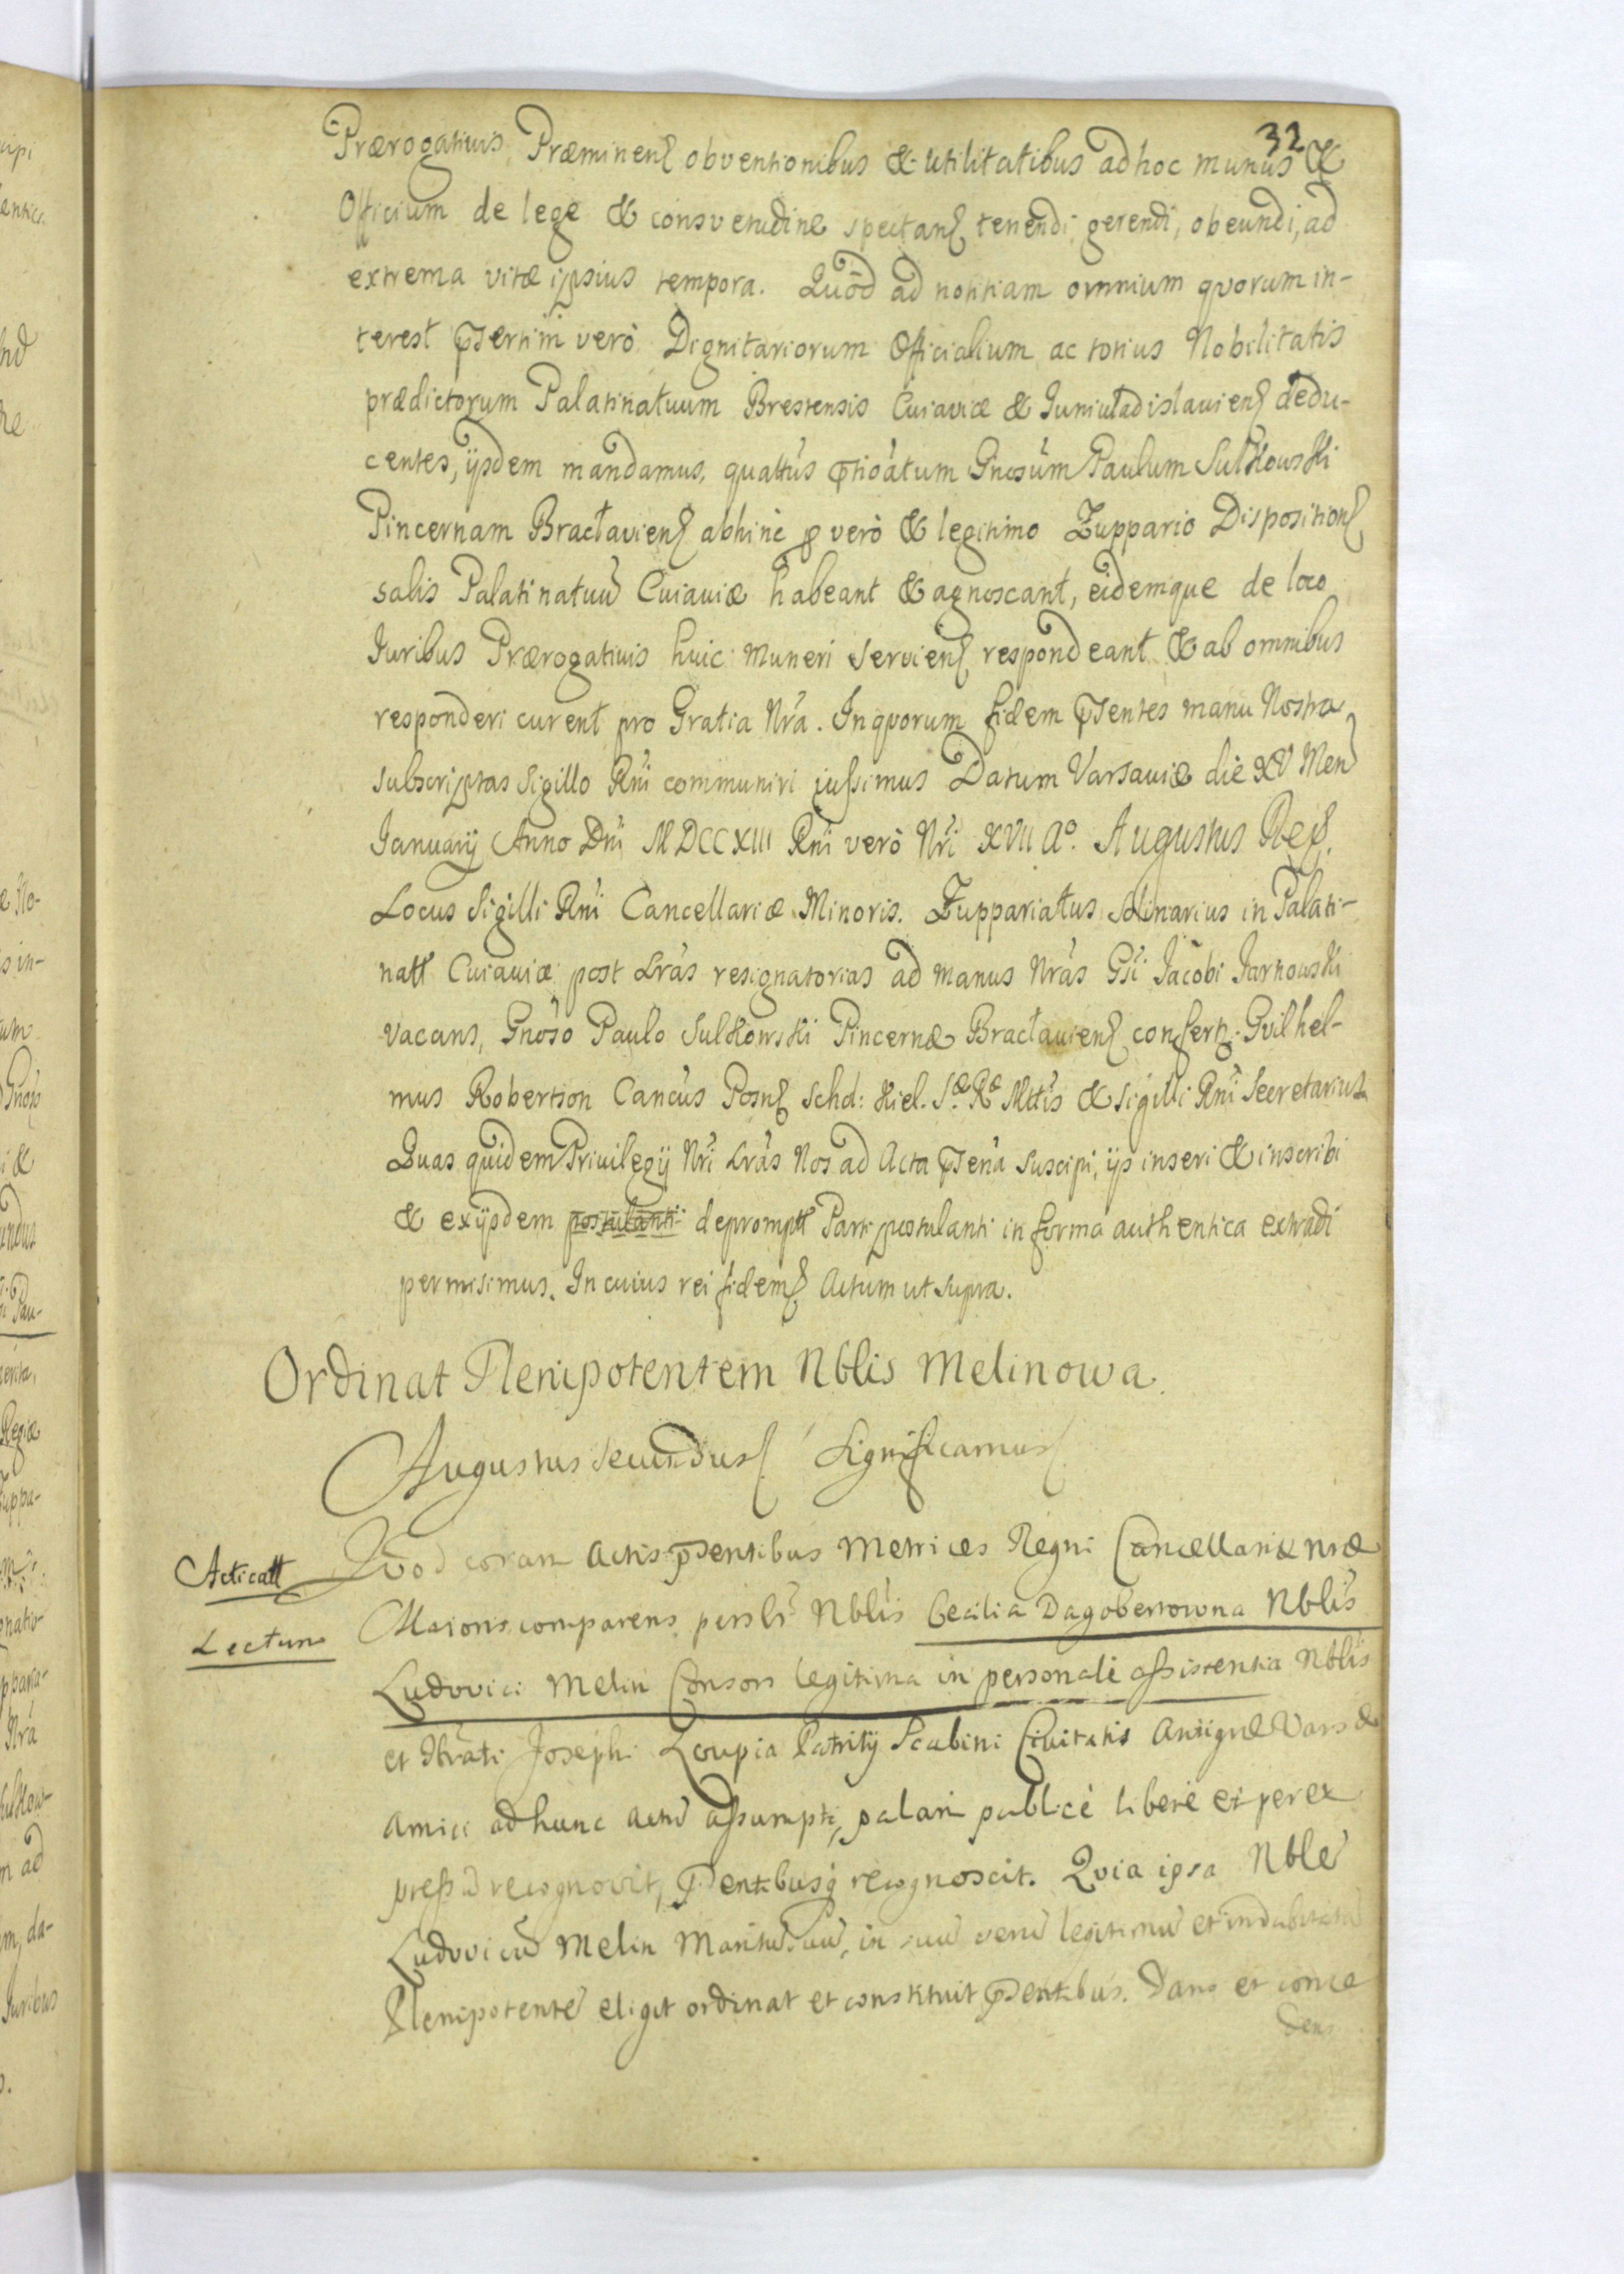 32
Prærogativis Præminen obventionibus & utilitatibus ad hoc munus &
Officium de lege & consvetudine spectan tenendi, gerendi, obeundi, ad
extrema vitæ ipsius tempora. Quod ad notitiam omnium qvorum in-
terest pserti͂m verò Dignitariorum Officialium ac totius Nobilitatis
prædictorum Palatinatuum Brestensis Cuiaviæ & Juniuladislauien dedu-
centes, ijsdem mandamus, quattùs ptioátum Gnosúm Paulum Sulkowski
Pincernam Bracłavien abhinc p verò & legitimo Zuppario Disposition
salis Palatinatuu͂ Cuiaviæ habeant & agnoscant, eidemque de loco
Juribus Prærogativis huic Muneri servien respondeant & ab omnibus
responderi curent pro Gratia Nrá. In qvorum fidem pśentes manu Nostra
subscriptas Sigillo Rni communiri jussimus Datum Varsaviæ die XV Men
Januarij Anno Dni MDCCXIII Rni verò Nri XVII Aº. Augustus Rex.
Locus Sigilli Rni Cancellariæ Minoris. Zuppariatus Salinarius in Palati-
natt Cuiaviæ post Lrás resignatorias ad manus Nrás Gsi Jacobi Jarnowski
vacans, Gnóso Paulo Sulkowski Pincernæ Bracłavien confertr. Gvilhel-
mus Robertson Cancús Posn Schd: Kiel. S.æ Ræ Mttis & Sigilli Rni Secretarius
Quas quidem Privilegij Nri Lrás Nos ad Acta pśená suscipi, ijs inseri & inscribi
& ex ijsdem postulanti deprompt Parti postulanti in forma authentica extradi
permisimus. In cuius rei fidem Actum ut supra.
Ordinat Plenipotentem Nblis Melinowa
Augustus Secundus Significamus
Acticatt
Lectum
Quod coram Actis pśentibus Metrices Regni Cancellariæ nræ
Maioris comparens persłr Nblis Cecilia Dagobertowna Nblis
Ludovici Melin Consors legitima in personali assistentia Nblis
et Josephi Loupia Patritij Scabini Civitatis Antiquæ Vars &
Amici ad hunc actu͂ assumpti, palam publicè liberè et per ex
pressu͂ recognovit, pśentibusq recognoscit. Qvia ipsa Nble͂
Ludovicu͂ Melin Maritu͂ suu͂, in suu͂ veru͂ legitimu͂ et indubitatu͂
Plenipotente͂ eligit ordinat et constituit pśentibus. Dans et conce
dens